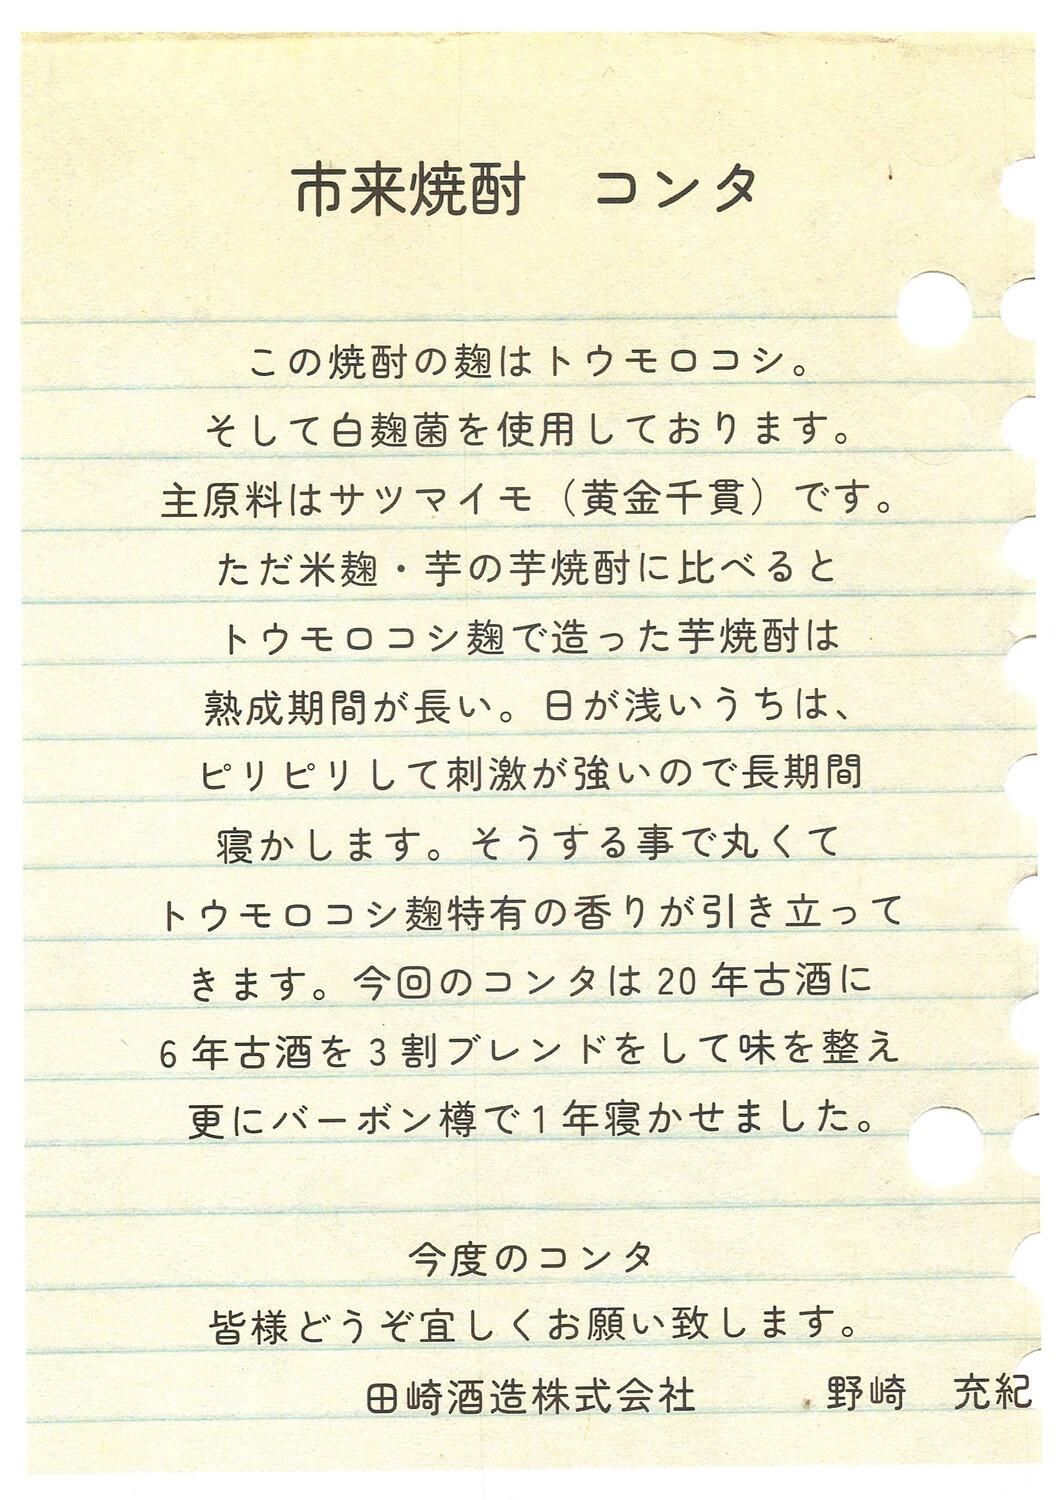 市来焼酎　コンタ
この焼酎の麹はトウモロコシ。
そして白麹菌を使用しております。
主原料はサツマイモ（黄金千貫）です。
ただ米麹・芋の芋焼酎に比べると
トウモロコシ麹で造った芋焼酎は
熟成期間が長い。日が浅いうちは、
ピリピリして刺激が強いので長期間
寝かします。そうする事で丸くて
トウモロコシ麹特有の香りが引き立って
きます。今回のコンタは 20 年古酒に
6 年古酒を 3 割ブレンドをして味を整え
更にバーボン樽で 1 年寝かせました。
今度のコンタ
皆様どうぞ宜しくお願い致します。
田崎酒造株式会社　　　野崎　充紀